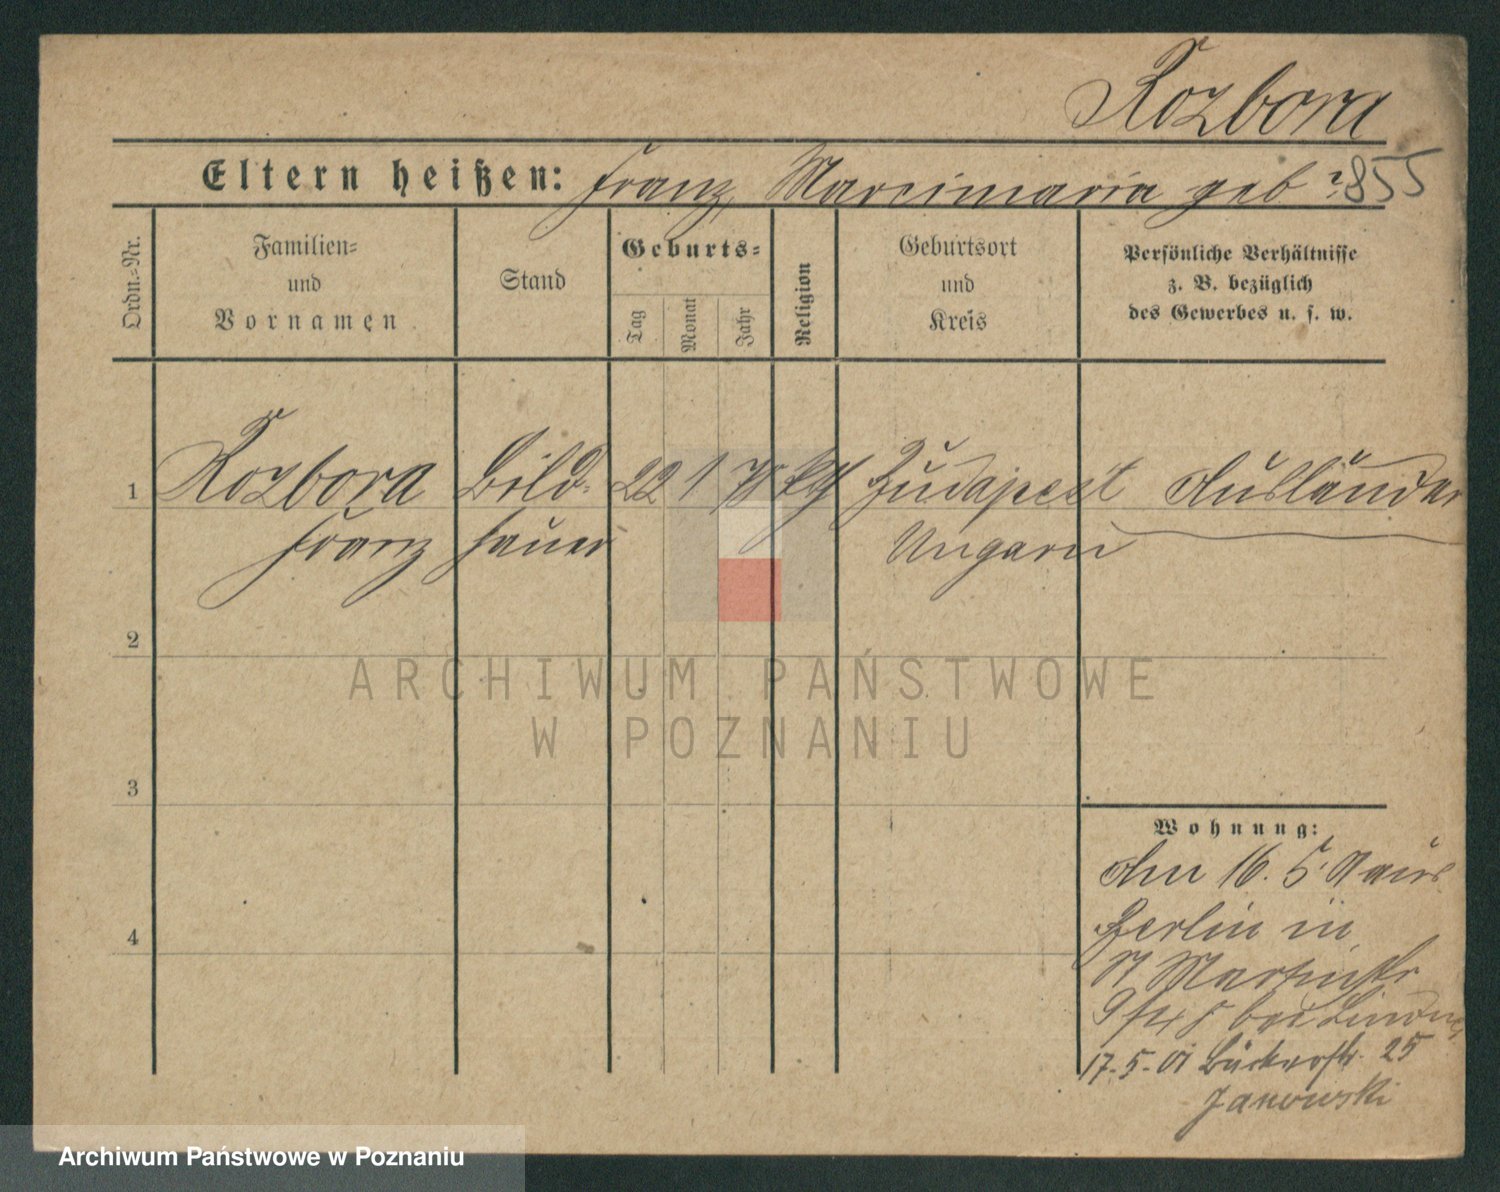 Rozbora
Eltern heißen: Franz, Marcimaria geb ?
855
Ordn.=Nr.
Familien=
und
Vornamen
Stand
Geburts=
Tag
Monat
Jahr
Religion
Geburtsort
und
Kreis
Persönliche Verhältnisse
z. B. bezüglich
des Gewerbes u. s. w.
1 Rozbora Bild= 22 1 Budapest Ausländer
Franz hauer Ungarn
2
3
4
Wohnung:
den 16. 5. aus
Berlin in
St Martinstr
bei
17.5.01 Bäckerstr. 25
Janowski
ARCHIWUM PAŃSTWOWE
W POZNANIU
Archiwum Państwowe w Poznaniu